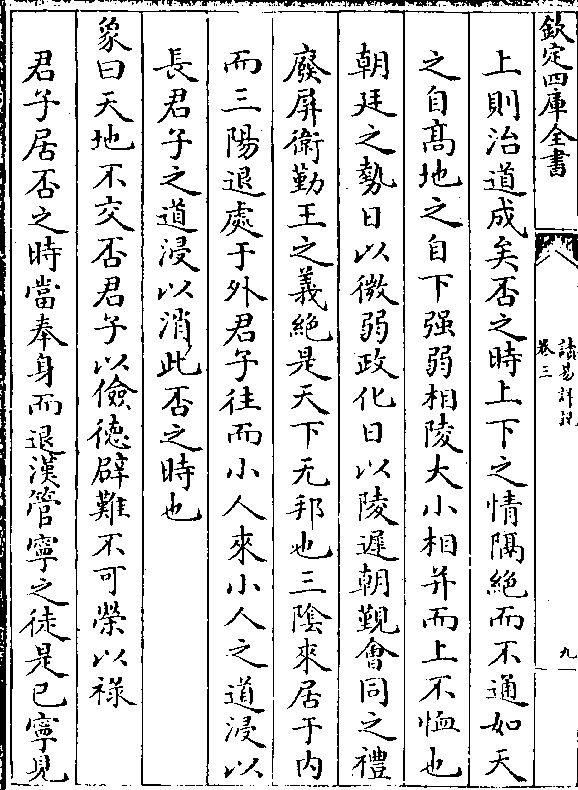 欽定四庫全書
讀易詳說
卷三
九
上則治道成矣否之時上下之情隔絶而不通如天
之自髙地之自下强弱相陵大小相并而上不恤也
朝廷之勢日以微弱政化日以陵遲朝覲會同之禮
廢屏衛勤王之義絶是天下无邦也三隂來居于内
而三陽退處于外君子往而小人來小人之道浸以
長君子之道浸以消此否之時也
象曰天地不交否君子以儉德辟難不可榮以祿
君子居否之時當奉身而退漢管寧之徒是已寧見